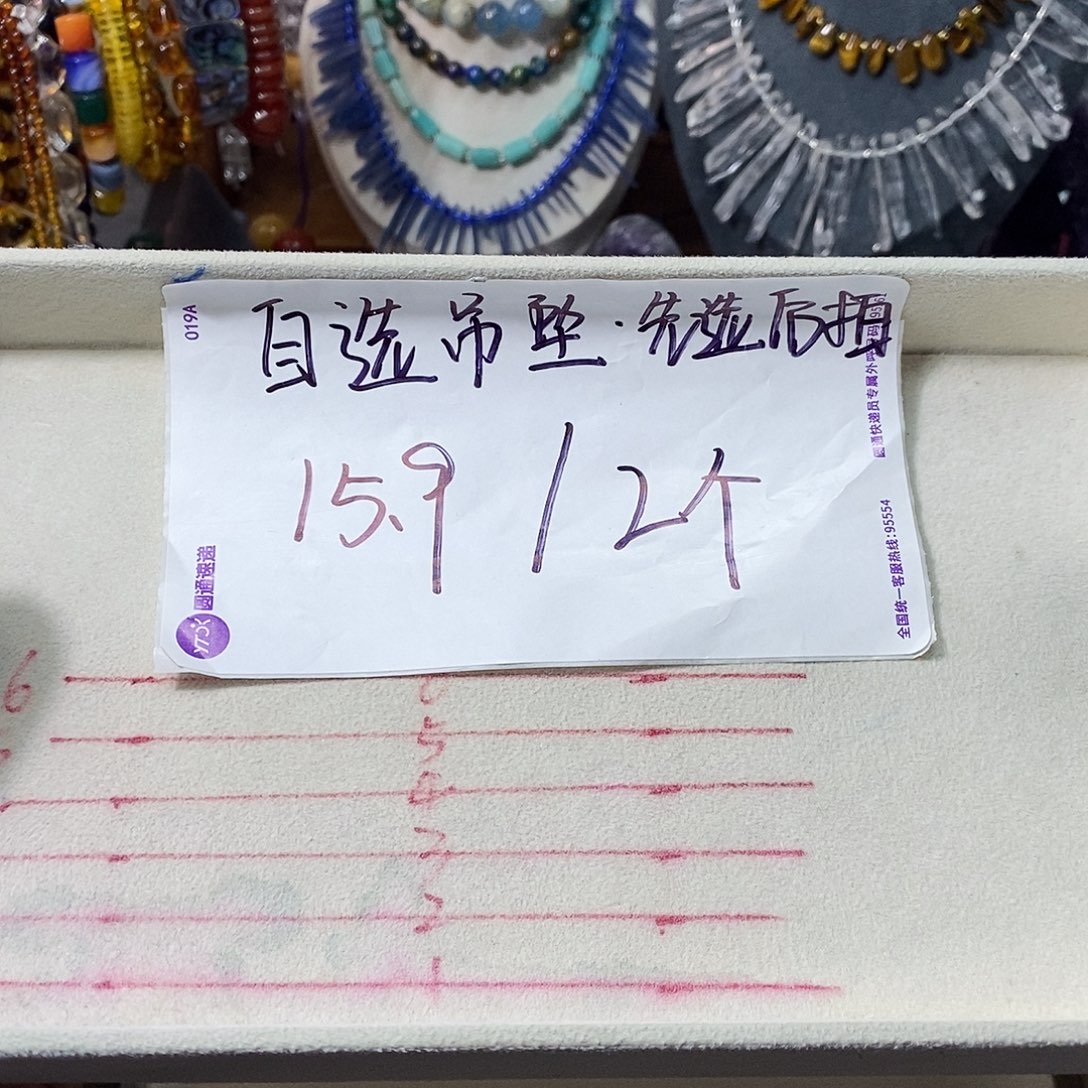 自选吊坠·先选后拍
15.9 / 2个
019A
圆通速递
YTO
全国统一客服热线:95554
圆通快递员专属外呼号码
6
6
5
4
3
2
1